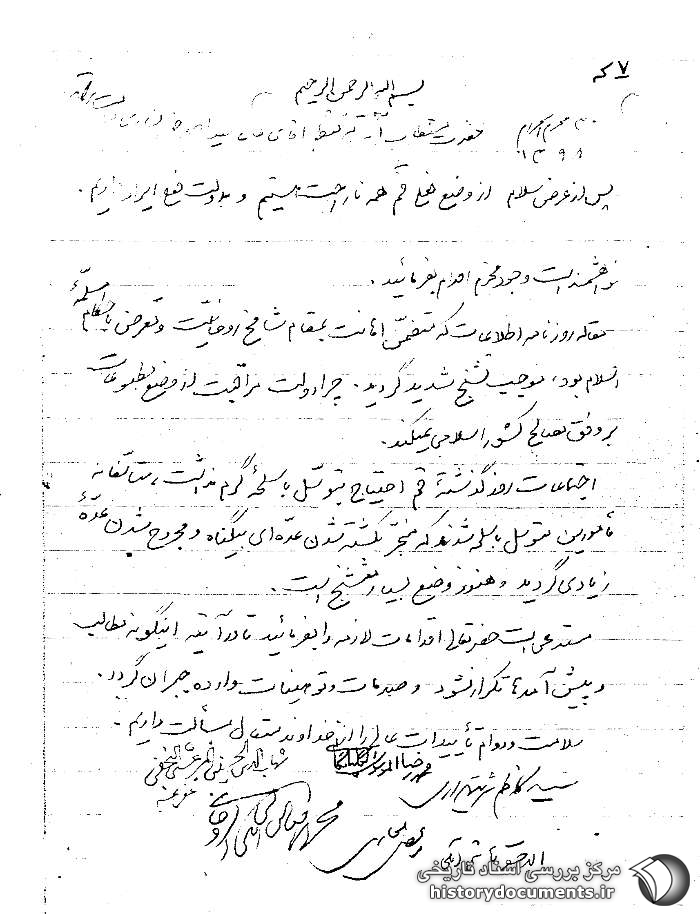 ۷ که
بسم الله الرحمن الرحیم
۳۰ محرم الحرام
۱۳۹۸
حضرت مستطاب آیت الله آقای حاج سید احمد خوانساری دامت برکاته
پس از عرض سلام از وضع فعلی قم همه ناراحت هستیم و بدولت فعلی ایراد داریم.
خواهشمند است وجود محترم اقدام بفرمائید.
مقاله روزنامه اطلاعات که متضمن اهانت بمقام شامخ روحانیت و تعرض باحکام مسلمهٔ
اسلام بود، موجب تشنج شدید گردید. چرا دولت مراقبت از وضع مطبوعات
بر وفق مصالح کشور اسلامی نمیکند.
اجتماعات روز گذشتهٔ قم احتیاج بتوسل باسلحهٔ گرم نداشت، متأسفانه
مأمورین متوسل باسلحه شدند که منجر بکشته شدن عده‌ای بیگناه و مجروح شدن عدهٔ
زیادی گردید و هنوز وضع بسیار متشنج است.
مستدعی است حضرتعالی اقدامات لازمه را بفرمائید تا در آتیه اینگونه مطالب
و پیش آمدها تکرار نشود و صدمات و توهینات وارده جبران گردد.
سلامت و دوام تأییدات عالی را از خداوند متعال مسألت داریم.
شهاب الدین الحسینی المرعشی النجفی
محمدرضا الموسوی الگلپایگانی
سید کاظم شریعتمداری
مرکز بررسی اسناد تاریخی
historydocuments.ir